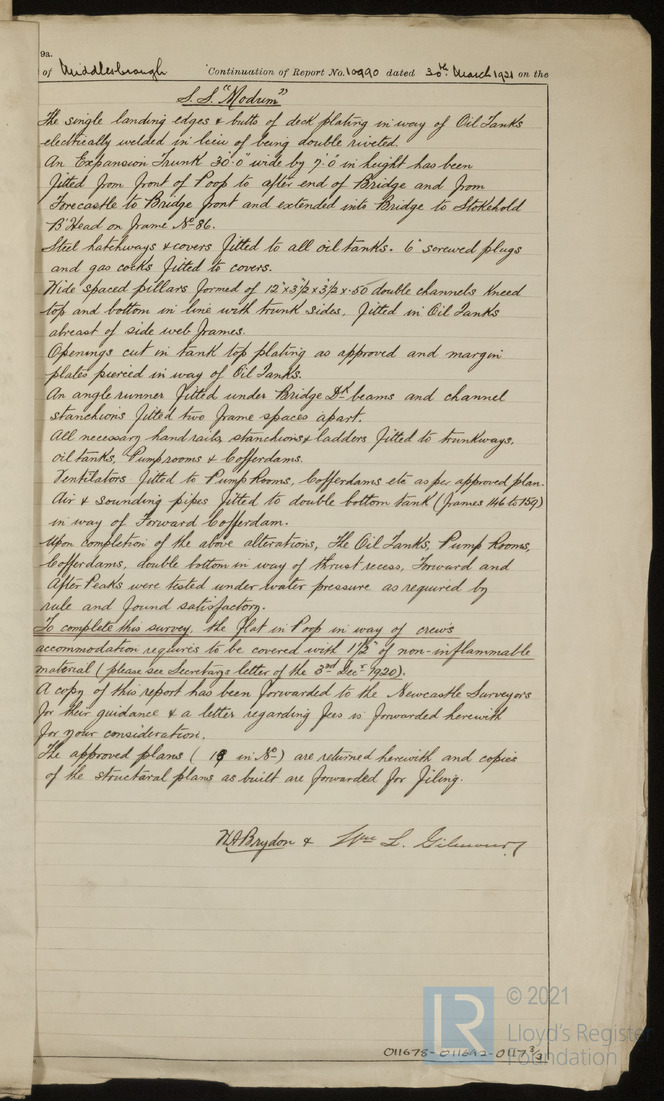 9a.
of Middlesbrough Continuation of Report No. 10990 dated 30th March 1921 on the
S.S. "Modrum"
The single landing edges & butts of deck plating in way of Oil Tanks
electrically welded in lieu of being double riveted.
An Expansion Trunk 30'.0" wide by 7'.0" in height has been
fitted from front of Poop to after end of Bridge and from
Forecastle to Bridge front and extended into Bridge to Stokehold
B'Head on frame No. 86.
Steel hatchways & covers fitted to all oil tanks. 6" screwed plugs
and gas cocks fitted to covers.
Wide spaced pillars formed of 12" x 3½ x 3½ x .50 double channels kneed
top and bottom in line with trunk sides, fitted in Oil Tanks
abreast of side web frames.
Openings cut in tank top plating as approved and margin
plates pierced in way of Oil Tanks.
An angle runner fitted under Bridge Dk beams and channel
stanchions fitted two frame spaces apart.
All necessary hand rails, stanchions & ladders fitted to trunkways,
oil tanks, Pumprooms & Cofferdams.
Ventilators fitted to Pump Rooms, Cofferdams etc as per approved plan.
Air & sounding pipes fitted to double bottom tank (frames 146 to 159)
in way of Forward Cofferdam.
Upon completion of the above alterations, the Oil Tanks, Pump Rooms,
Cofferdams, double bottom in way of thrust recess, Forward and
After Peaks were tested under water pressure as required by
rule and found satisfactory.
To complete this survey, the flat in Poop in way of crew's
accommodation requires to be covered with 1½" of non-inflammable
material (please see Secretary's letter of the 3rd Decr 1920).
A copy of this report has been forwarded to the Newcastle Surveyors
for their guidance & a letter regarding fees is forwarded herewith
for your consideration.
The approved plans ( in No) are returned herewith and copies
of the structural plans as built are forwarded for filing.
H A Brydon & Wm L. Gilmour
LR
© 2021
Lloyd's Register
Foundation
011678-011692-0117 3/3